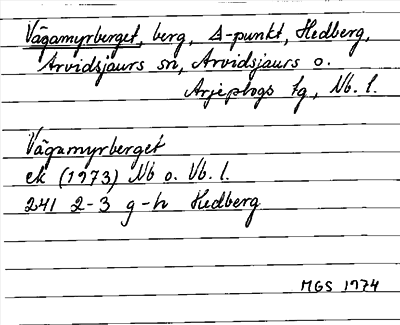 Vågamyrberget, berg, Δ-punkt, Hedberg,
Arvidsjaurs sn, Arvidsjaurs o.
Arjeplogs tg, Nb. l.
Vågamyrberget
ek (1973) Nb o. Vb. l.
241 2-3 g-h Hedberg
MGS 1974